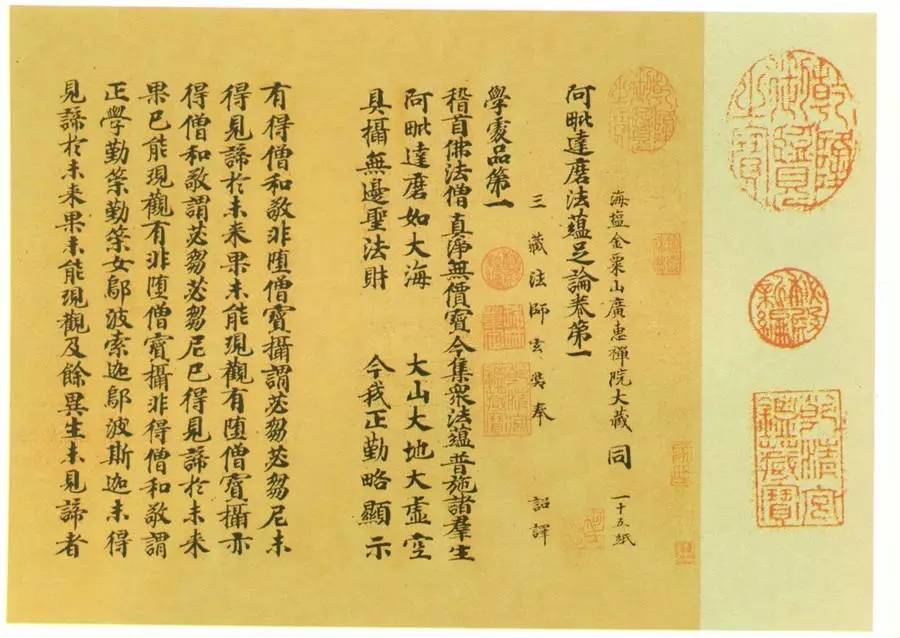 乾隆御覽之寶
秘殿新編
乾清宮鑑藏寶
海塩金粟山廣惠禪院大藏 同 一十五紙
阿毗達磨法蘊足論卷第一
三藏法師玄奘奉 詔譯
學處品第一
稽首佛法僧真淨無價寶今集衆法蘊普施諸羣生
阿毗達磨如大海 大山大地大虛空
具攝無邊聖法財 今我正勤略顯示
有得僧和敬非墮僧寶攝謂苾芻苾芻尼未
得見諦於未来果未能現觀有墮僧寶攝亦
得僧和敬謂苾芻苾芻尼已得見諦於未来
果已能現觀有非墮僧寶攝非得僧和敬謂
正學勤策勤策女鄔波索迦鄔波斯迦未得
見諦於未来果未能現觀及餘異生未見諦者